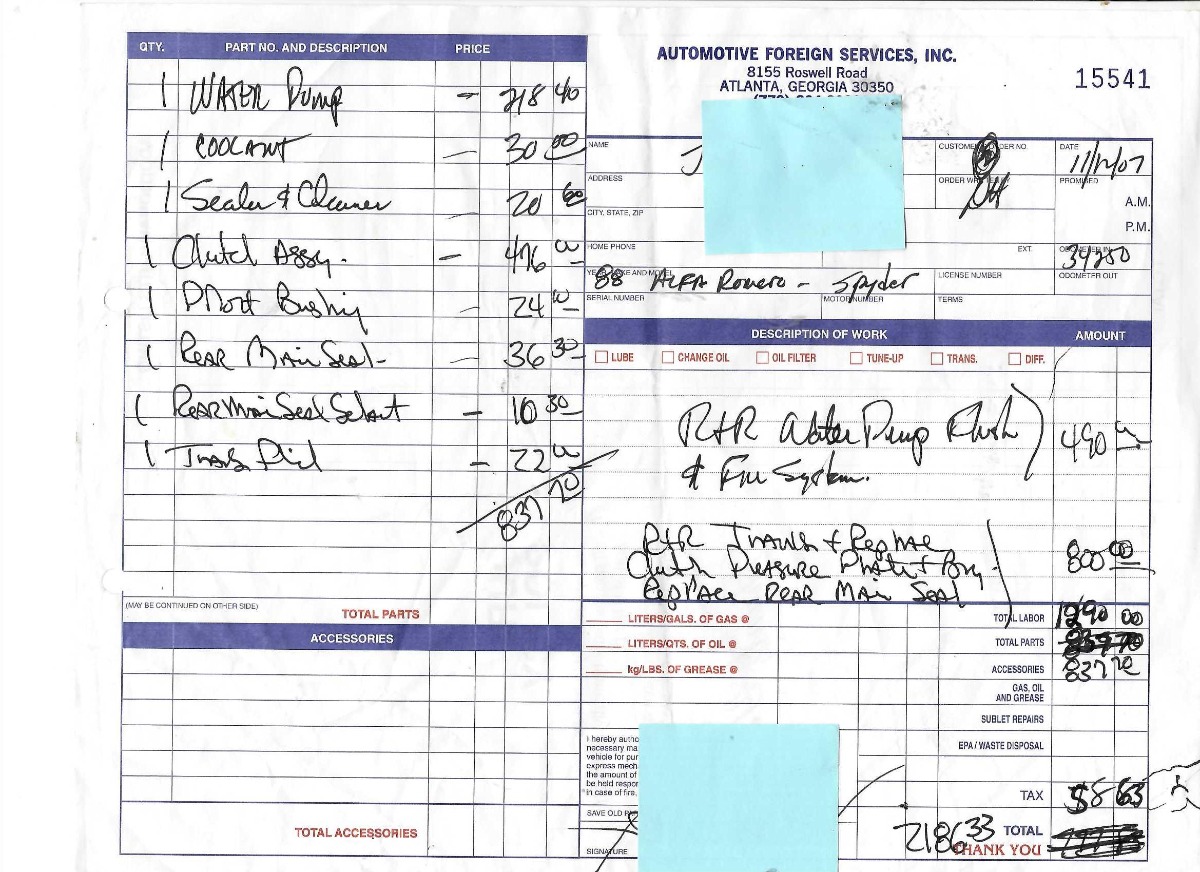 QTY. PART NO. AND DESCRIPTION PRICE
1 WATER Pump - 218 40
1 COOLANT - 30 00
1 Sealer & Cleaner - 20 60
1 Clutch Assy. - 476 00
1 Pilot Bushing - 24 00
1 Rear Main Seal - 36 30
1 Rear Main Seal Selant - 10 30
1 Trans Fluid - 22 00
837 70
(MAY BE CONTINUED ON OTHER SIDE) TOTAL PARTS
ACCESSORIES
TOTAL ACCESSORIES
AUTOMOTIVE FOREIGN SERVICES, INC.
8155 Roswell Road
ATLANTA, GEORGIA 30350
15541
NAME J
CUSTOMER ORDER NO.
DATE 11/12/07
ADDRESS
ORDER
PROMISED A.M. P.M.
CITY, STATE, ZIP
HOME PHONE EXT.
ODOMETER IN 34250
YEAR, MAKE AND MODEL 88 ALFA Romero - Spyder
LICENSE NUMBER
ODOMETER OUT
SERIAL NUMBER MOTOR NUMBER TERMS
DESCRIPTION OF WORK AMOUNT
LUBE CHANGE OIL OIL FILTER TUNE-UP TRANS. DIFF.
R+R Water Pump Flush 490 00
& Fill System.
R+R Trans + Replace 800 00
Clutch Pressure Plate + Brg
Replace Rear Main Seal
LITERS/GALS. OF GAS @ TOTAL LABOR 1290 00
LITERS/QTS. OF OIL @ TOTAL PARTS 837 70
kg/LBS. OF GREASE @ ACCESSORIES 837 70
GAS, OIL AND GREASE
SUBLET REPAIRS
I hereby autho
necessary ma
vehicle for pur
express mech
the amount of
be held respon
in case of fire.
EPA / WASTE DISPOSAL
TAX 58 63
SAVE OLD
2186 33 TOTAL
SIGNATURE
THANK YOU